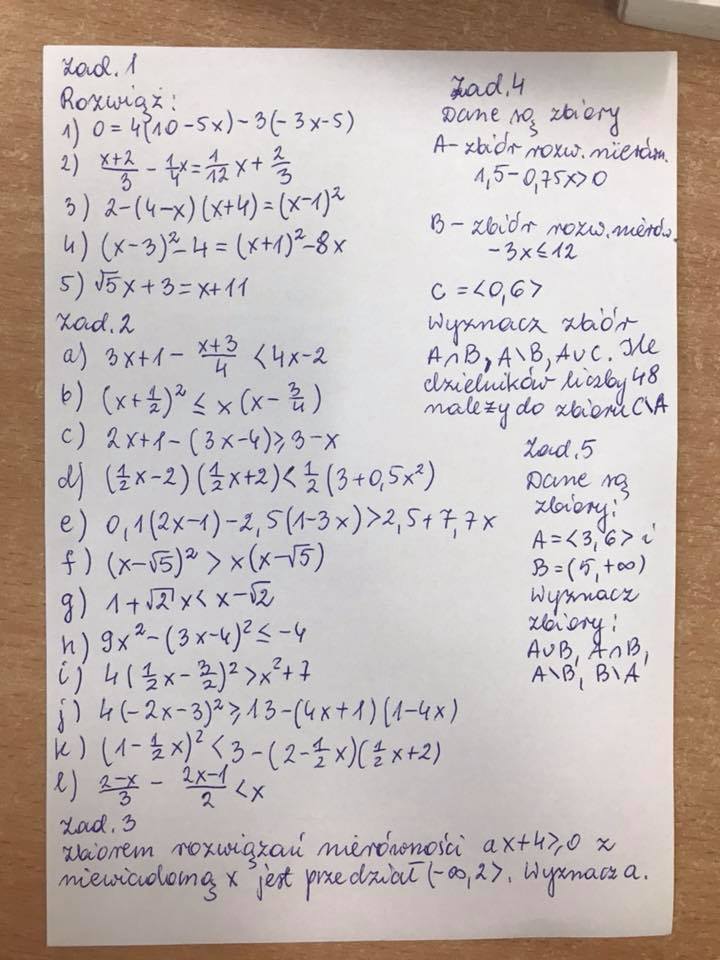 Zad. 1
Rozwiąż:
1) 0 = 4(10-5x)-3(-3x-5)
2) \frac{x+2}{3} - \frac{1}{4}x = \frac{1}{12}x + \frac{2}{3}
3) 2-(4-x)(x+4)=(x-1)²
4) (x-3)²-4=(x+1)²-8x
5) √5x+3=x+11
Zad. 2
a) 3x+1 - \frac{x+3}{4} < 4x-2
b) (x+\frac{1}{2})² ≤ x(x-\frac{3}{4})
c) 2x+1-(3x-4)≥3-x
d) (\frac{1}{2}x-2)(\frac{1}{2}x+2)<\frac{1}{2}(3+0,5x²)
e) 0,1(2x-1)-2,5(1-3x)>2,5+7,7x
f) (x-√5)² > x(x-√5)
g) 1+√2 x < x-√2
h) 9x²-(3x-4)² ≤ -4
i) 4(\frac{1}{2}x-\frac{3}{2})²>x²+7
j) 4(-2x-3)²≥13-(4x+1)(1-4x)
k) (1-\frac{1}{2}x)²<3-(2-\frac{1}{2}x)(\frac{1}{2}x+2)
l) \frac{2-x}{3} - \frac{2x-1}{2} < x
Zad. 3
Zbiorem rozwiązań nierówności ax+4≥0 z
niewiadomą x jest przedział (-∞,2>. Wyznacz a.
Zad. 4
Dane są zbiory
A- zbiór rozw. nierówn.
1,5-0,75x>0
B- zbiór rozw. nierówn.
-3x≤12
C = <0,6>
Wyznacz zbiór
A∩B, A\B, A∪C. Ile
dzielników liczby 48
należy do zbioru C\A
Zad. 5
Dane są
zbiory:
A=<3,6> i
B=(5,+∞)
Wyznacz
zbiory:
A∪B, A∩B,
A\B, B\A